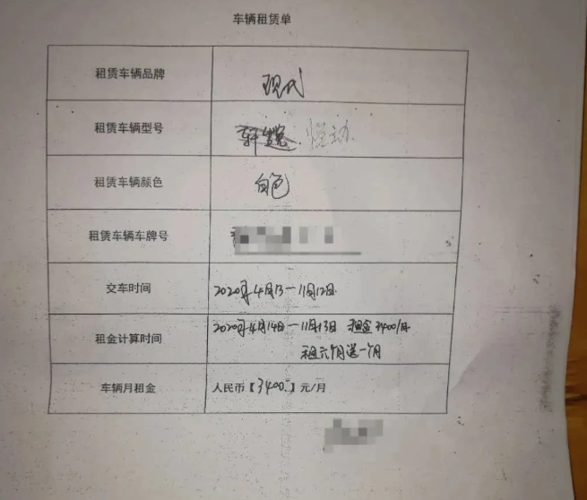 车辆租赁单
租赁车辆品牌
现代
租赁车辆型号
悦动
租赁车辆颜色
白色
租赁车辆车牌号
交车时间
2020年4月13一11月12日
租金计算时间
2020年4月14日一11月13日 租金3400/月
租六个月送一个月
车辆月租金
人民币【3400】元/月